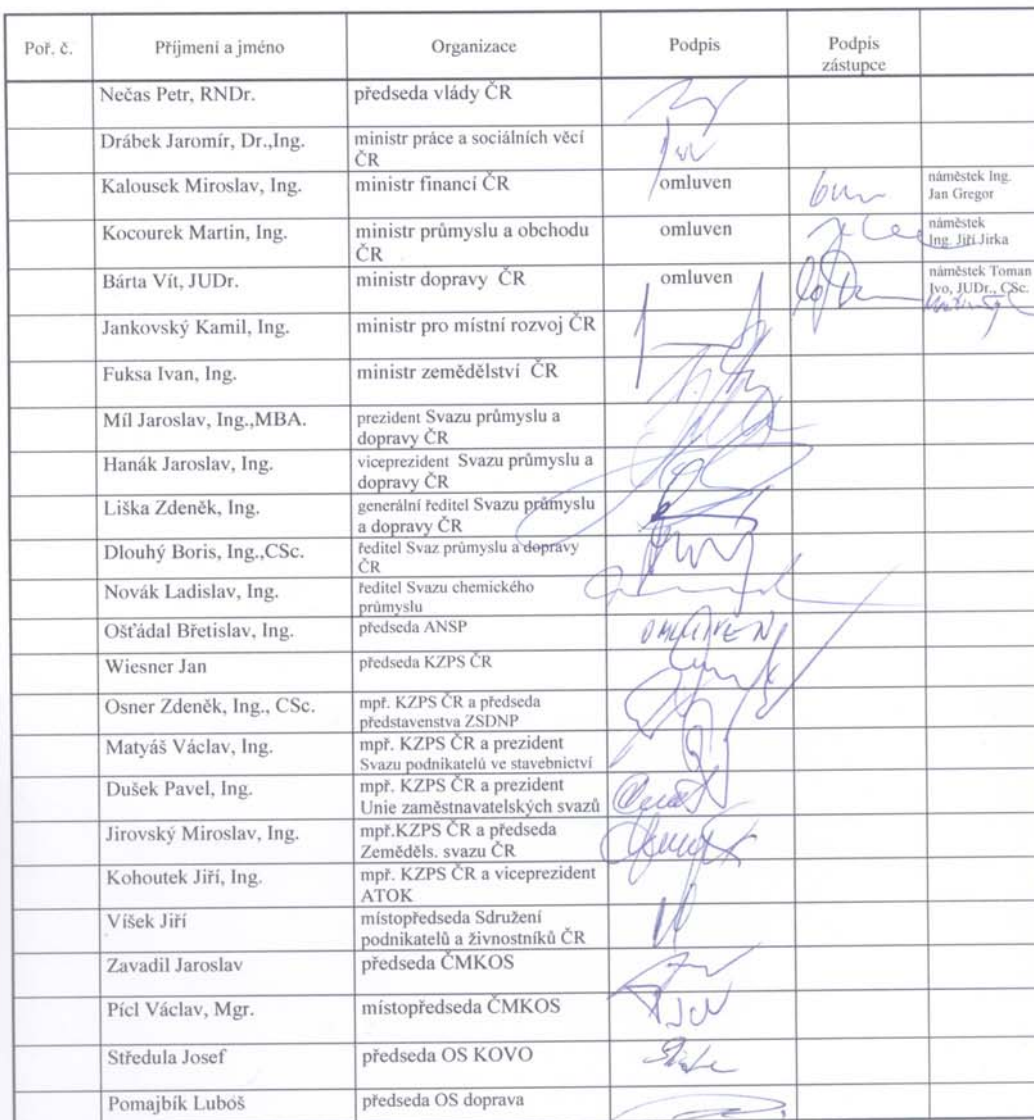 Poř. č. Příjmení a jméno Organizace Podpis Podpis
zástupce
Nečas Petr, RNDr. předseda vlády ČR
Drábek Jaromír, Dr.,Ing. ministr práce a sociálních věcí
ČR
Kalousek Miroslav, Ing. ministr financí ČR omluven náměstek Ing.
Jan Gregor
Kocourek Martin, Ing. ministr průmyslu a obchodu omluven náměstek
ČR Ing. Jiří Jirka
Bárta Vít, JUDr. ministr dopravy ČR omluven náměstek Toman
Ivo, JUDr., CSc.
Jankovský Kamil, Ing. ministr pro místní rozvoj ČR
Fuksa Ivan, Ing. ministr zemědělství ČR
Míl Jaroslav, Ing.,MBA. prezident Svazu průmyslu a
dopravy ČR
Hanák Jaroslav, Ing. viceprezident Svazu průmyslu a
dopravy ČR
Liška Zdeněk, Ing. generální ředitel Svazu průmyslu
a dopravy ČR
Dlouhý Boris, Ing.,CSc. ředitel Svaz průmyslu a dopravy
ČR
Novák Ladislav, Ing. ředitel Svazu chemického
průmyslu
Ošťádal Břetislav, Ing. předseda ANSP OMLUVEN
Wiesner Jan předseda KZPS ČR
Osner Zdeněk, Ing., CSc. mpř. KZPS ČR a předseda
představenstva ZSDNP
Matyáš Václav, Ing. mpř. KZPS ČR a prezident
Svazu podnikatelů ve stavebnictví
Dušek Pavel, Ing. mpř. KZPS ČR a prezident
Unie zaměstnavatelských svazů
Jirovský Miroslav, Ing. mpř.KZPS ČR a předseda
Zeměděls. svazu ČR
Kohoutek Jiří, Ing. mpř. KZPS ČR a viceprezident
ATOK
Víšek Jiří místopředseda Sdružení
podnikatelů a živnostníků ČR
Zavadil Jaroslav předseda ČMKOS
Pícl Václav, Mgr. místopředseda ČMKOS
Středula Josef předseda OS KOVO
Pomajbík Luboš předseda OS doprava